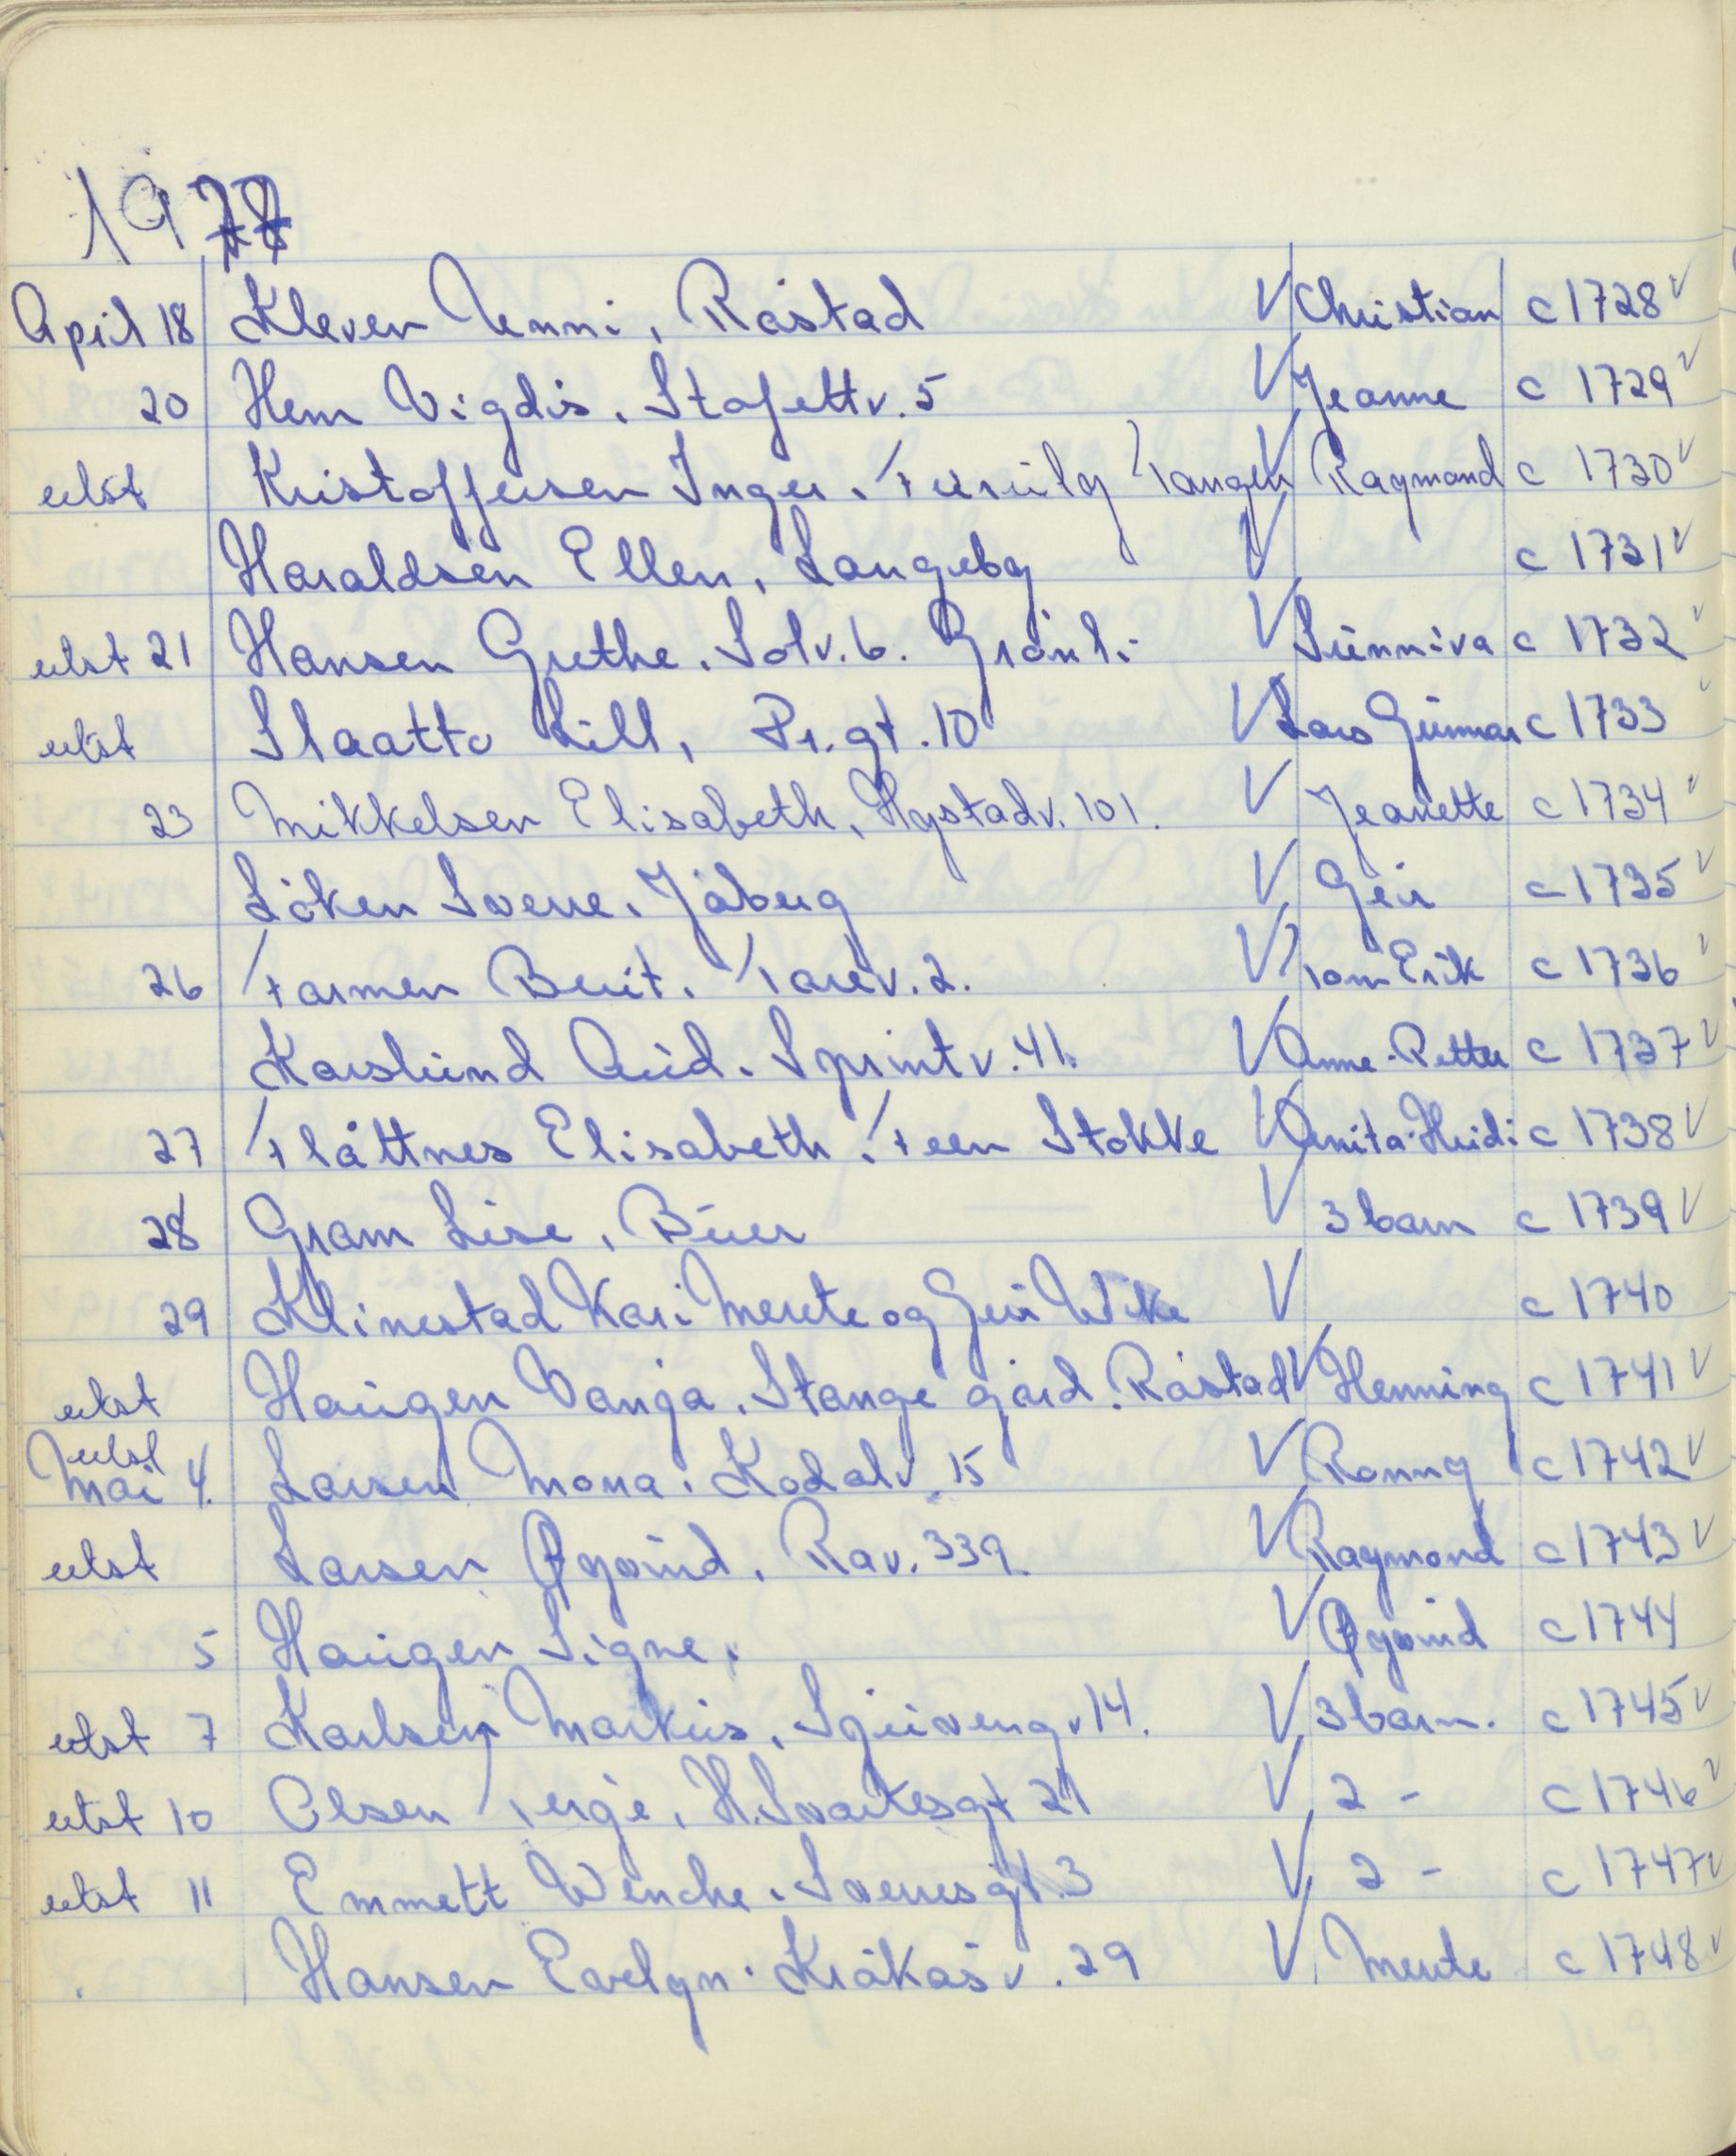 1978
April 18 Kleven Unni, Råstad V Christian c 1728 v
20 Hem Vigdis. Stafettv. 5 V Jeanne c 1729 v
utst Kristoffersen Inger. Furuly Tangen V Raymond c 1730 v
Haraldsen Ellen, Langeby V c 1731 v
utst 21 Hansen Grethe. Solv. 6. Grønli V Sunniva c 1732 v
utst Slaatto Lill, Pr. gt. 10 V Lars Gunnar c 1733
23 Mikkelsen Elisabeth, Hystadv. 101. V Jeanette c 1734 v
Løken Sverre. Jåberg V Geir c 1735 v
26 Farmen Berit. Tarev. 2. V Tom Erik c 1736 v
Karslund Aud. Sprintv. 41. V Anne-Petter c 1737 v
27 Flåttnes Elisabeth. Feen Stokke V Anita-Heidi c 1738 v
28 Gram Lise, Buer V 3 barn c 1739 v
29 Klinestad Kari Merete og Geir Wike V c 1740
utst Haugen Vanja. Stange gård. Råstad V Henning c 1741 v
utst
Mai 4. Larsen Mona. Kodalv. 15 V Ronny c 1742 v
utst Larsen Øyvind, Rav. 339. V Raymond c 1743 v
5 Haugen Signe. V Øyvind c 1744
utst 7 Karlsen Markus, Sjuvengv 14. V 3 barn. c 1745 v
utst 10 Olsen Terje, H. Svartesgt 21 V 2 - c 1746 v
utst 11 Emmett Wenche. Sverresgt. 3 V 2 - c 1747 v
Hansen Evelyn. Kråkåsv. 29 V Merete c 1748 v